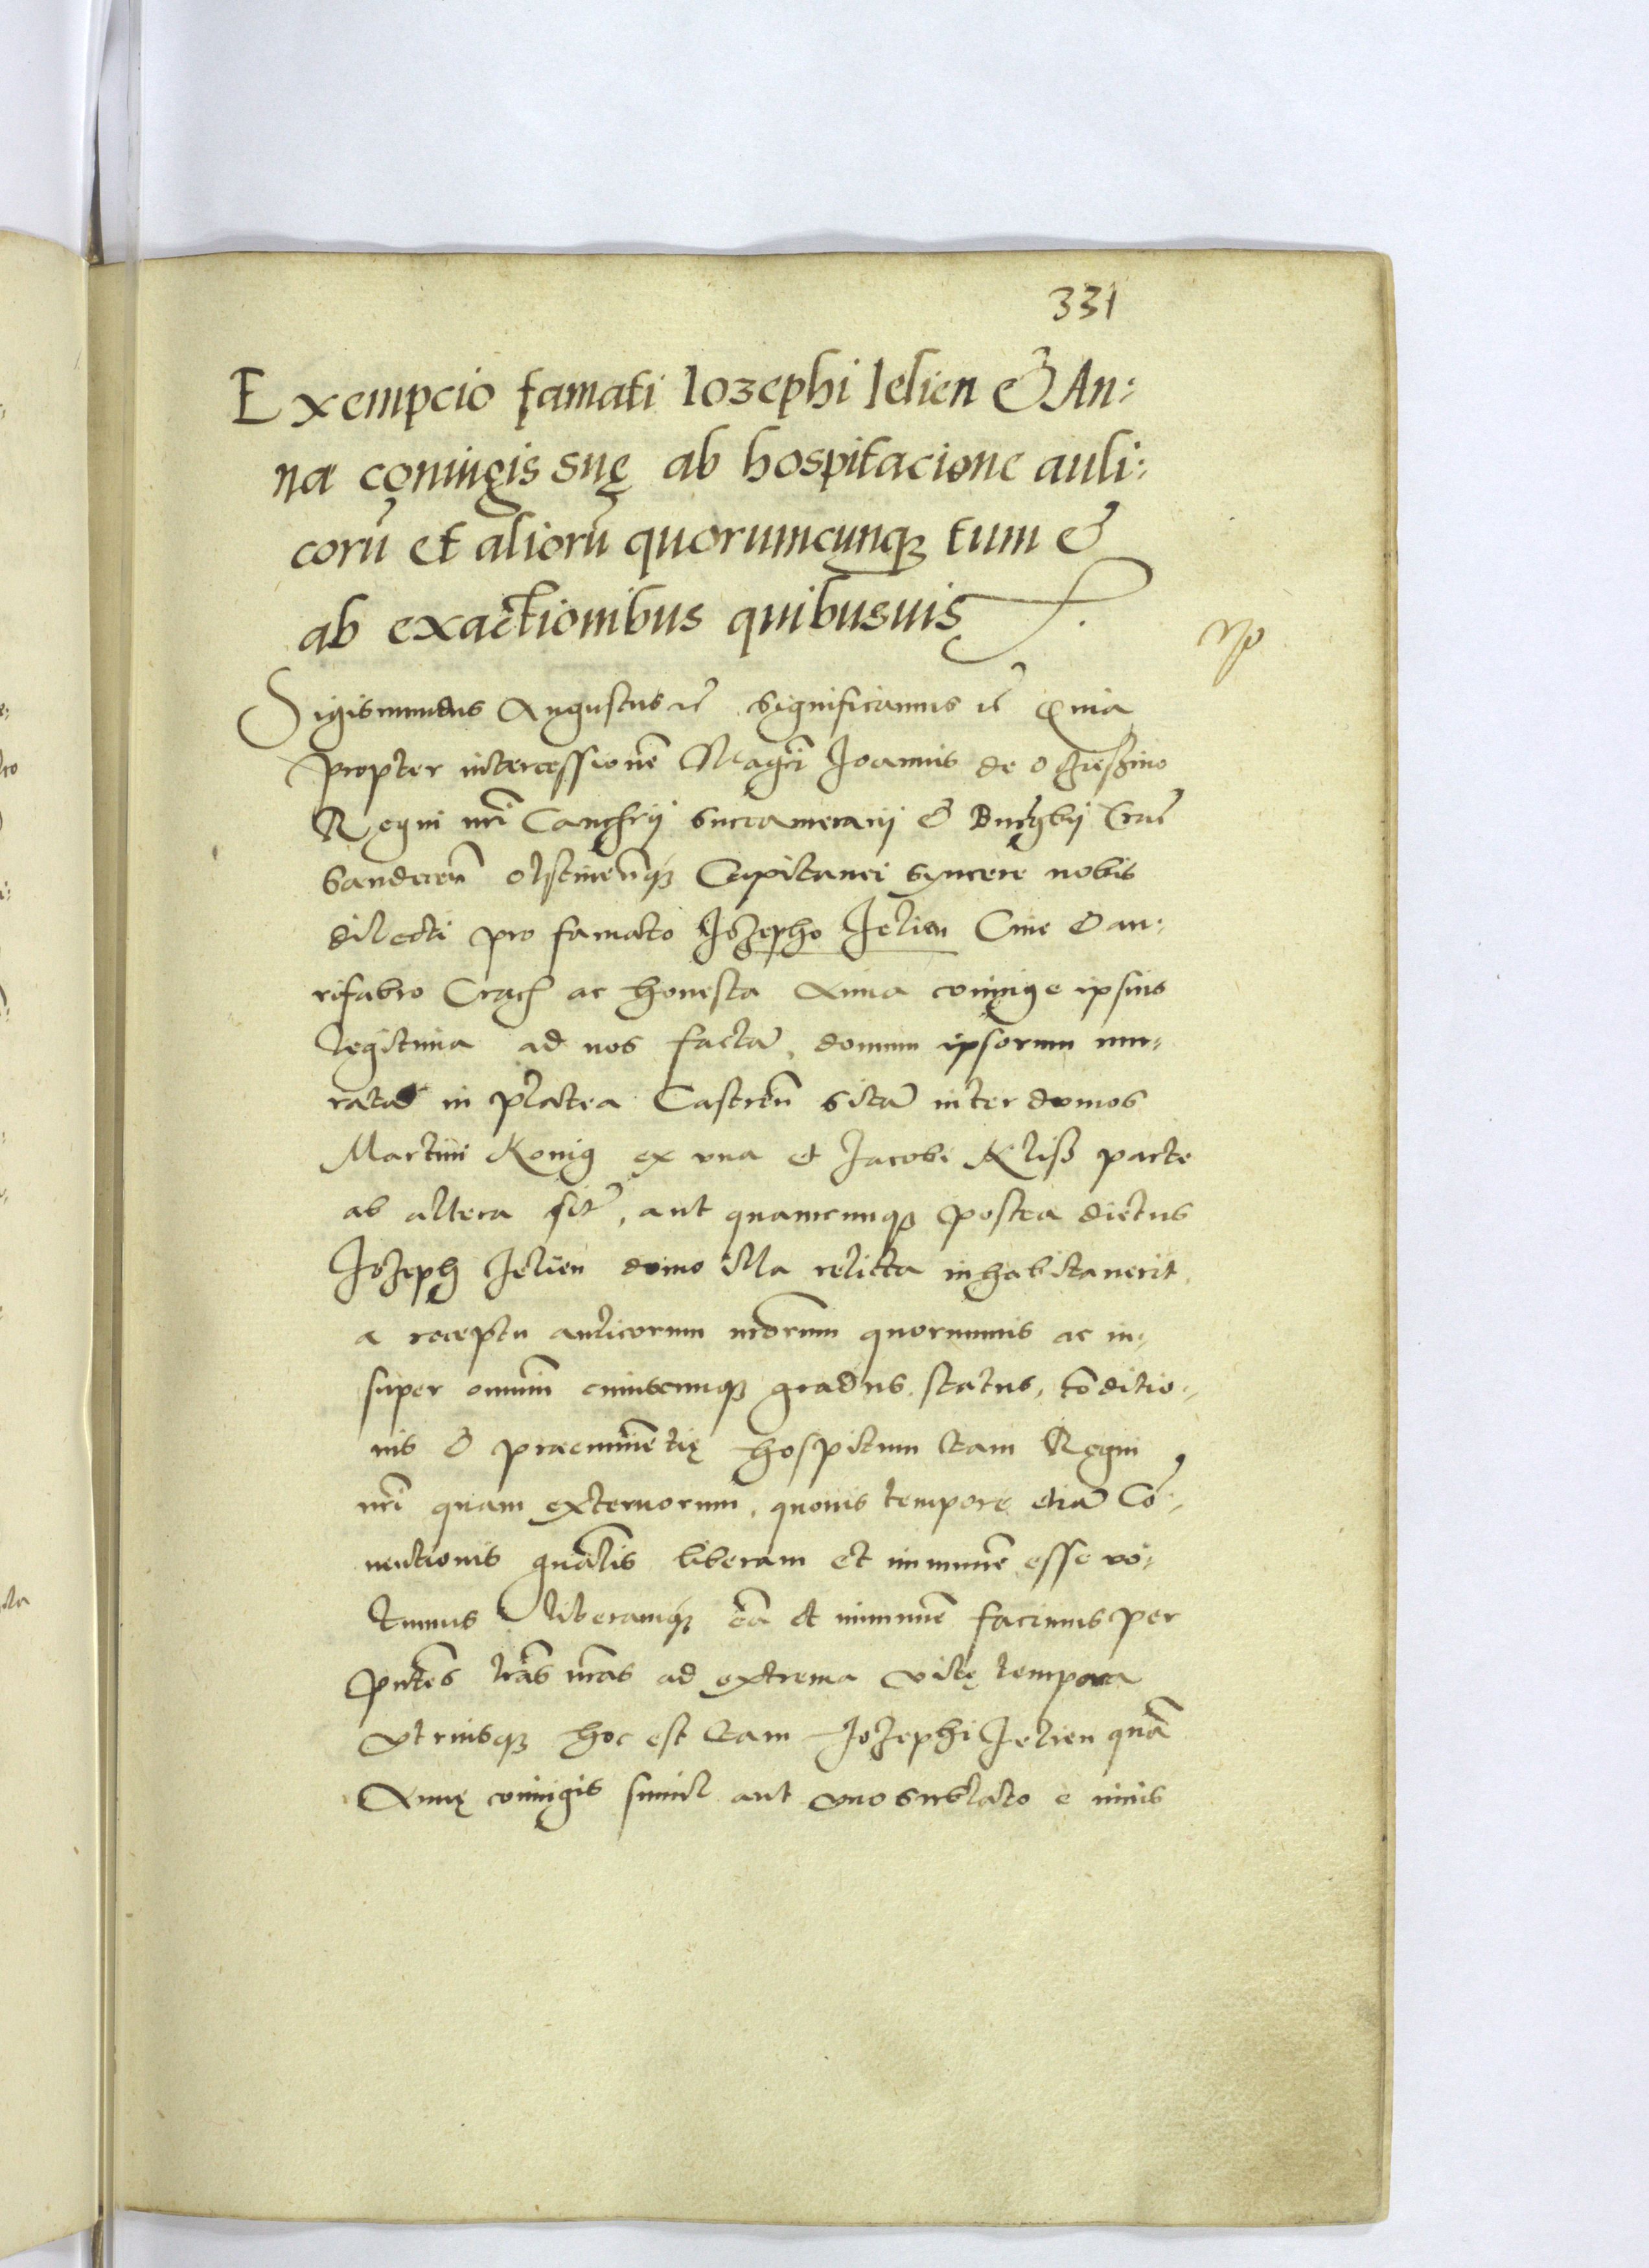 331
Exempcio famati Iozephi Ielien & An:
næ coniugis suę ab hospitacione auli:
corū et aliorū quorumcunqꝫ tum &
ab exactionibus quibusuis
Sigismundus Augustus ꝛc̃ significamus ꝛc̃ Quia
propter intercessionẽ Magci Joannis de Ogrießino
Regni nrĩ Canc̃rij Succamerarij & Burgbij Crac̃
Sandecen̄ Olstinen̄qꝫ Capitanei syncere nobis
dilecti pro famato Jozepho Jelien Ciue & au:
rifabro Crac̃ ac honesta Anna coniuge ipsius
legitima ad nos factā, domum ipsorum mu:
ratā in platea Castren̄ sitā inter domos
Martini Konig ex vna et Jacobi Kliß parte
ab altera sit̃, aut quamcunqꝫ postea dictus
Jozeph Jelien domo illa relicta inhabitauerit,
a receptu aulicorum nrõrum quorumuis ac in:
super omniū cuiuscunqꝫ gradus, status, cõditio:
nis & praeminẽtię hospitum tam Regni
nrĩ quam externorum, quouis tempore etiā Cõ:
uentionis gnãlis liberam et immunẽ esse vo:
lumus liberamqꝫ eā et immunẽ facimus per
pñtẽs lrãs nrãs ad extrema vitę tempora
vtriusqꝫ hoc est tam Jozephi Jelien quā
Annę coniugis simul aut vno sublato e viuis